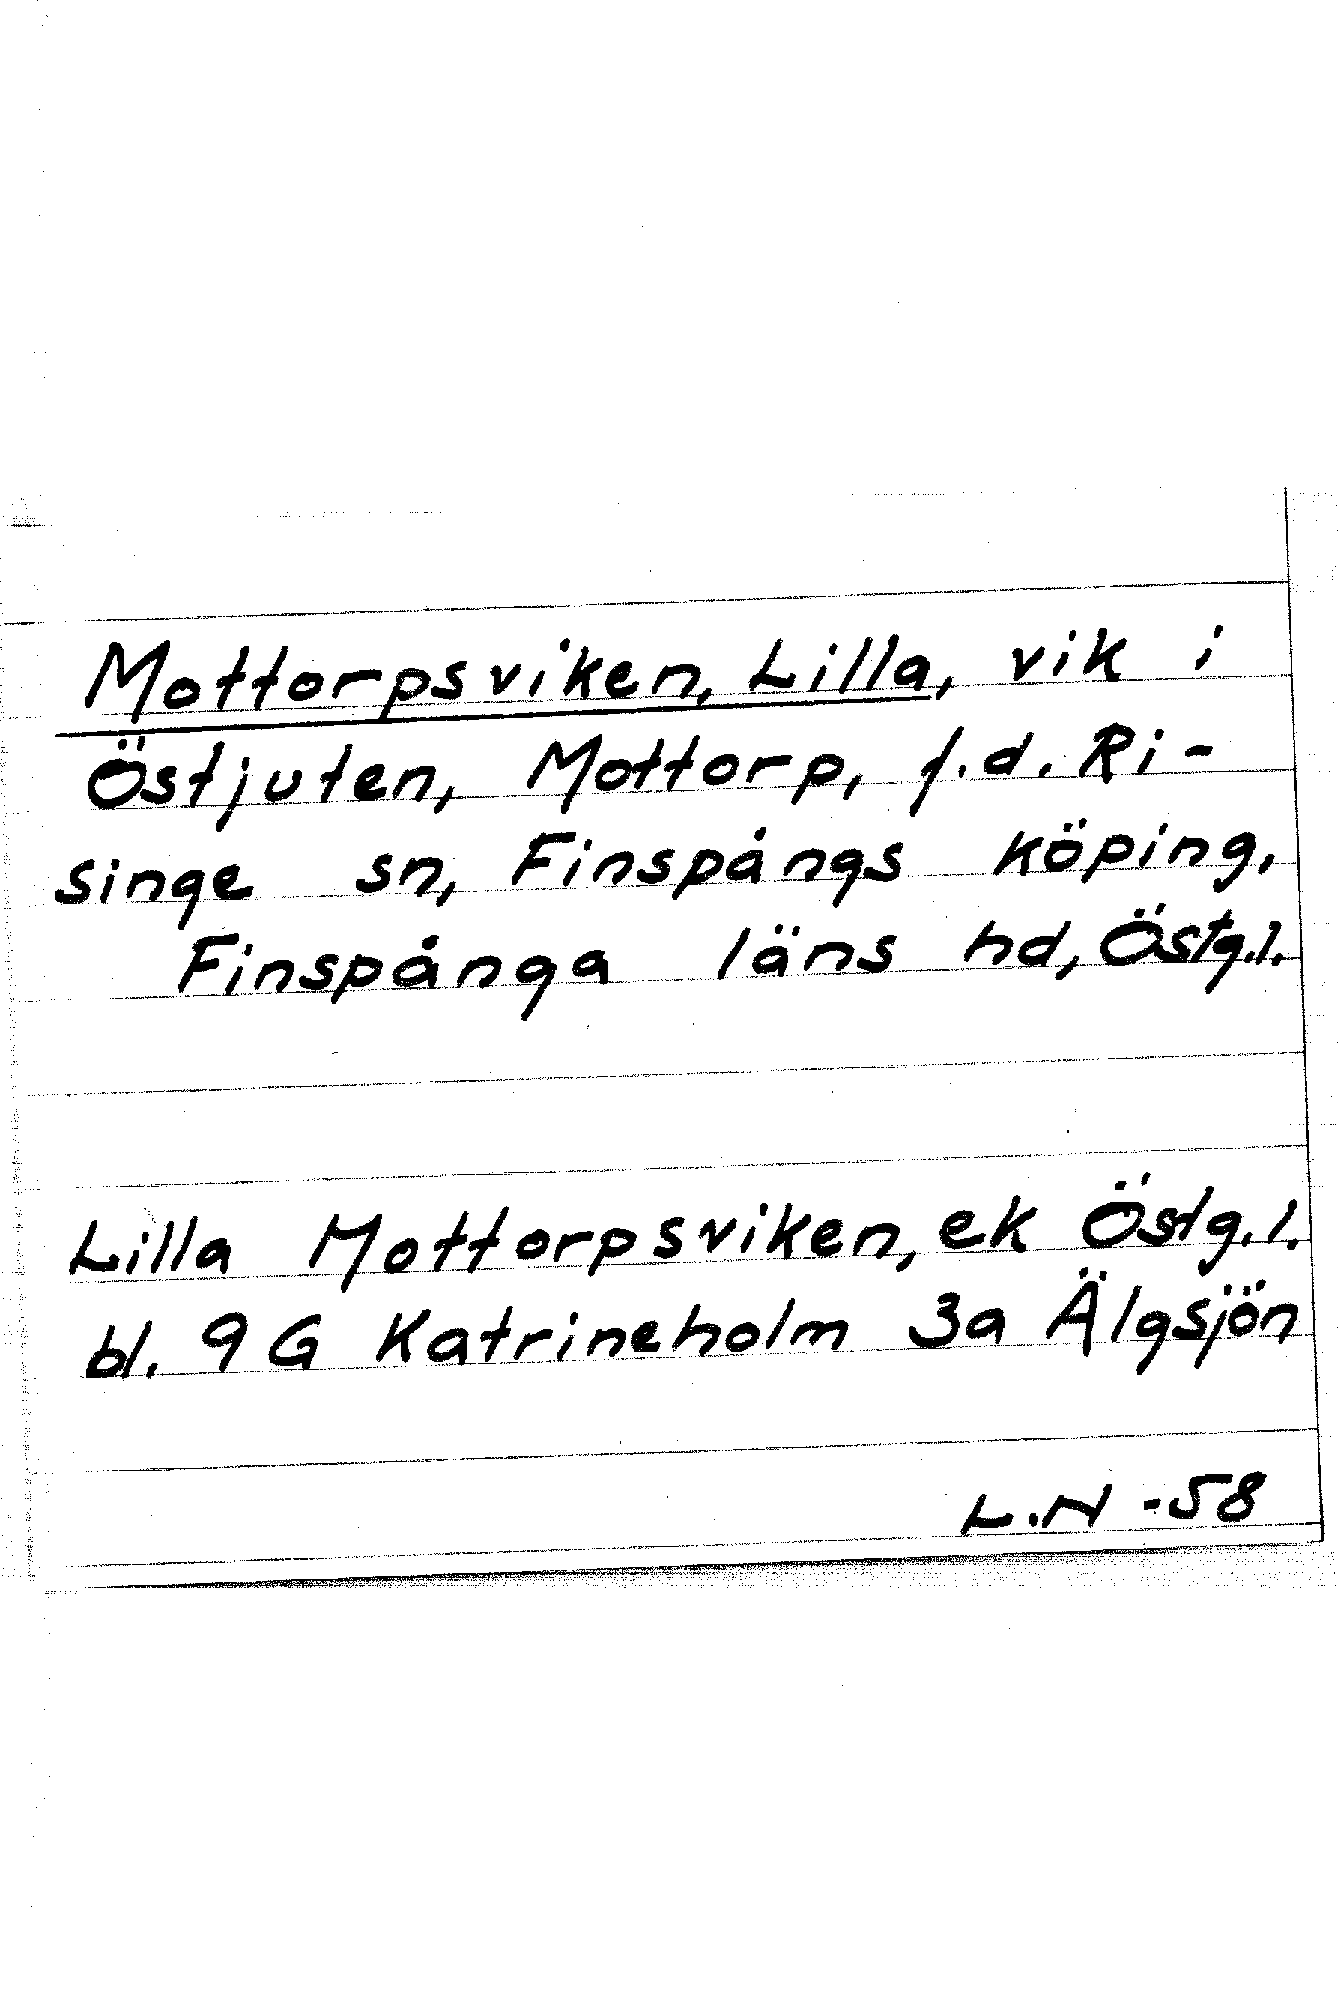 Mottorpsviken, Lilla, vik i
Östjuten, Mottorp, f.d. Ri-
singe sn, Finspångs köping,
Finspånga läns hd, Östg.l.
Lilla Mottorpsviken, ek Östg.l.
bl. 9G Katrineholm 3a Älgsjön
L.N -58